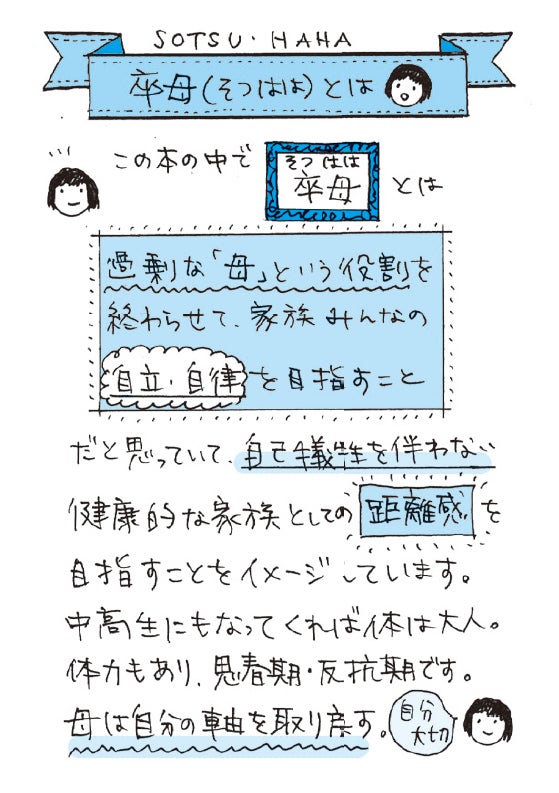 SOTSU・HAHA
卒母(そつはは)とは
この本の中で
そつはは
卒母
とは
過剰な「母」という役割を
終わらせて、家族みんなの
自立・自律を目指すこと
だと思っていて、自己犠牲を伴わない
健康的な家族としての距離感を
目指すことをイメージしています。
中高生にもなってくれば体は大人。
体力もあり、思春期・反抗期です。
母は自分の軸を取り戻す。
自分
大切